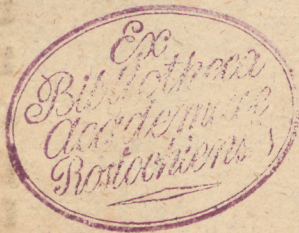 Ex
Bibliotheca
academiae
Rostochiensi